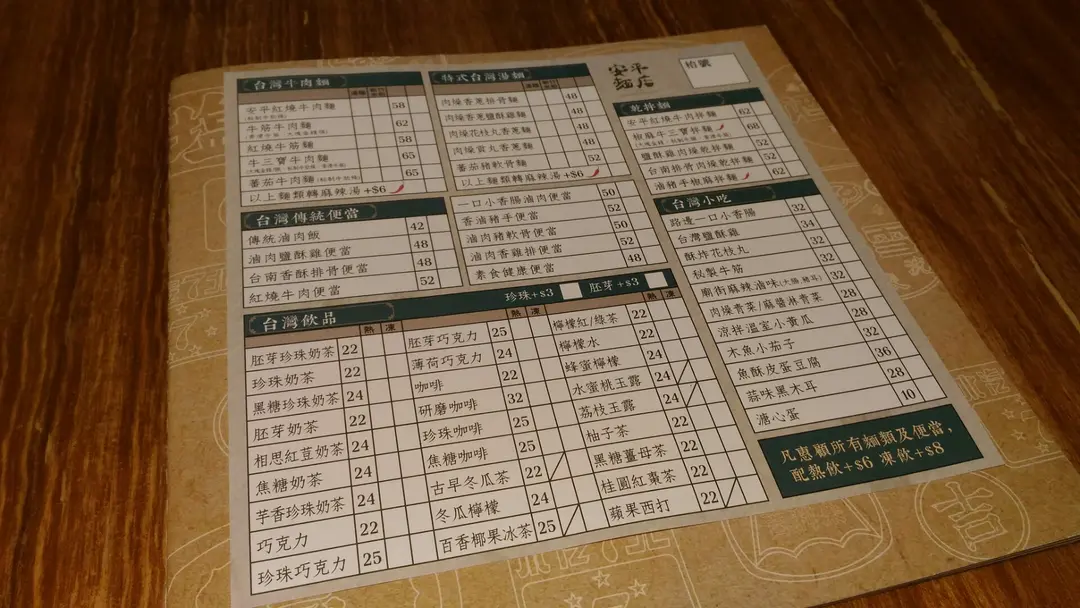 安平
麵店
枱號
台灣牛肉麵
湯麵
安平紅燒牛肉麵 58
牛筋牛肉麵 62
紅燒牛筋麵 58
牛三寶牛肉麵 65
蕃茄牛肉麵 65
以上麵類轉麻辣湯+$6
特式台灣湯麵
肉燥香蔥排骨麵 48
肉燥香蔥鹽酥雞麵 48
肉燥花枝丸香蔥麵 48
肉燥貢丸香蔥麵 48
蕃茄豬軟骨麵 52
以上麵類轉麻辣湯+$6
乾拌麵
安平紅燒牛肉拌麵 62
椒麻牛三寶拌麵 68
鹽酥雞肉燥乾拌麵 52
台南排骨肉燥乾拌麵 52
滷豬手椒麻拌麵 62
台灣傳統便當
傳統滷肉飯 42
滷肉鹽酥雞便當 48
台南香酥排骨便當 48
紅燒牛肉便當 52
一口小香腸滷肉便當 50
香滷豬手便當 52
滷肉豬軟骨便當 50
滷肉香雞排便當 52
素食健康便當 48
台灣小吃
路邊一口小香腸 32
台灣鹽酥雞 34
酥炸花枝丸 32
秘製牛筋 32
廟街麻辣滷味(大腸,豬耳) 32
肉燥青菜/麻醬淋青菜 28
涼拌溫室小黃瓜 28
木魚小茄子 32
魚酥皮蛋豆腐 36
蒜味黑木耳 28
溏心蛋 10
台灣飲品
珍珠+$3
胚芽+$3
熱 凍
胚芽珍珠奶茶 22
珍珠奶茶 22
黑糖珍珠奶茶 24
胚芽奶茶 22
相思紅荳奶茶 24
焦糖奶茶 24
芋香珍珠奶茶 24
巧克力 22
珍珠巧克力 25
熱 凍
胚芽巧克力 25
薄荷巧克力 24
咖啡 22
研磨咖啡 32
珍珠咖啡 25
焦糖咖啡 25
古早冬瓜茶 22
冬瓜檸檬 24
百香椰果冰茶 25
熱 凍
檸檬紅/綠茶 22
檸檬水 22
蜂蜜檸檬 24
水蜜桃玉露 24
荔枝玉露 24
柚子茶 22
黑糖薑母茶 22
桂圓紅棗茶 22
蘋果西打 22
凡惠顧所有麵類及便當,
配熱飲+$6 凍飲+$8